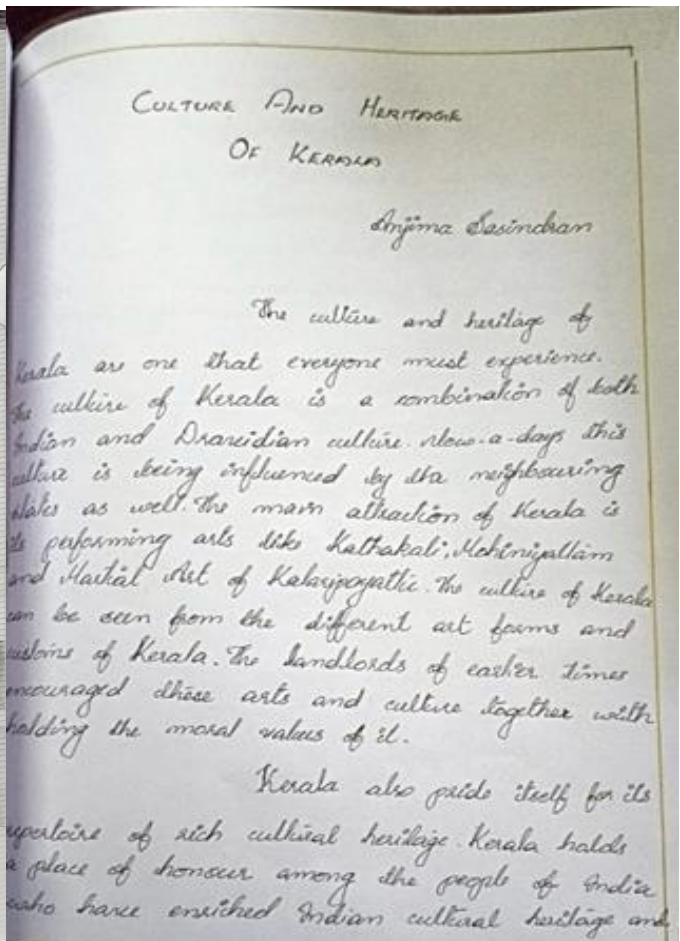 CULTURE AND HERITAGE
OF KERALA
Anjima Sasindran
The culture and heritage of
Kerala are one that everyone must experience.
The culture of Kerala is a combination of both
Indian and Draveidian culture. Now-a-days this
culture is being influenced by the neighbouring
states as well. The main attraction of Kerala is
its performing arts like Kathakali, Mohiniyattam
and Martial Art of Kalaripayattic. The culture of Kerala
can be seen from the different art forms and
customs of Kerala. The landlords of earlier times
encouraged these arts and culture together with
holding the moral values of it.
Kerala also pride itself for its
repertoire of rich cultural heritage. Kerala holds
a place of honour among the people of India
who have enriched Indian cultural heritage and